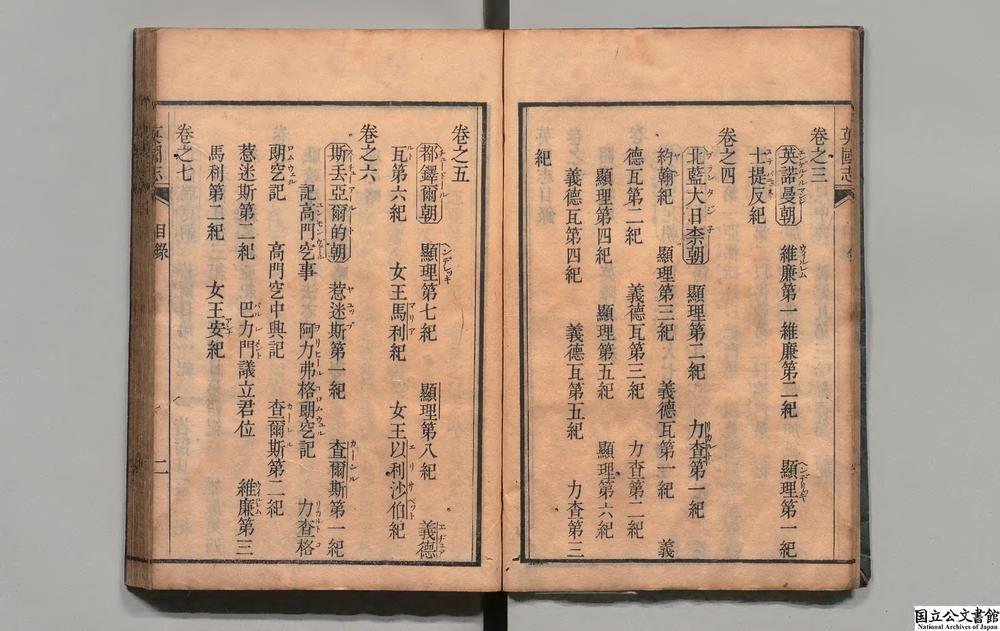 英國志
卷之三
英諾曼朝 維廉第一維廉第二紀 顯理第一紀
士提反紀
卷之四
北藍大日柰朝 顯理第二紀 力查第一紀
約翰紀 顯理第三紀 義德瓦第一紀 義
德瓦第二紀 義德瓦第三紀 力查第二紀
顯理第四紀 顯理第五紀 顯理第六紀
義德瓦第四紀 義德瓦第五紀 力查第三
紀
卷之五
都鐸爾朝 顯理第七紀 顯理第八紀 義德
瓦第六紀 女王馬利紀 女王以利沙伯紀
マリア エリサベット
卷之六
斯丟亞爾的朝 惹迷斯第一紀 查爾斯第一紀
記高門窊事 阿力弗格朗窊記 力查格
朗窊記 高門窊中興記 查爾斯第二紀
惹迷斯第二紀 巴力門議立君位 維廉第三
馬利第二紀 女王安紀
アンナ
卷之七
英國志 目錄 二
国立公文書館
National Archives of Japan